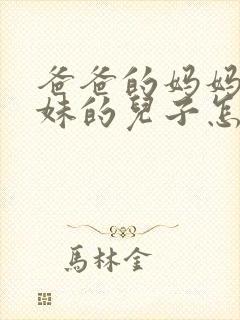 爸爸的妈妈
妹的兒子怎
馬林金